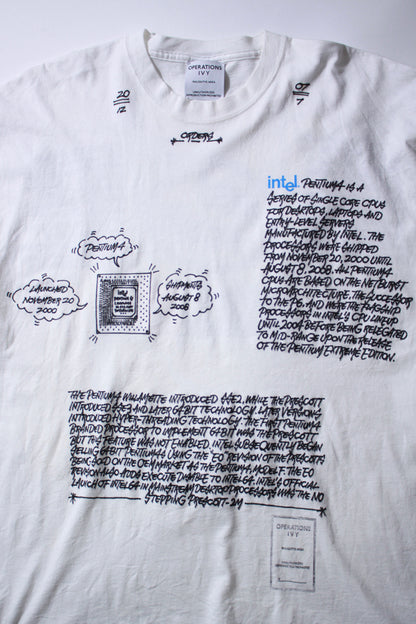 OPERATIONS
IVY
20
12
07
7
ORDERS
intel. PENTIUM 4 IS A
SERIES OF SINGLE CORE CPUS
FOR DESKTOPS, LAPTOPS AND
ENTRY LEVEL SERVERS
MANUFACTURED BY INTEL. THE
PROCESSORS WERE SHIPPED
FROM NOVEMBER 20, 2000 UNTIL
AUGUST 8, 2008. ALL PENTIUM 4
CPUS ARE BASED ON THE NETBURST
MICROARCHITECTURE, THE SUCCESSOR
TO THE P6. AND WERE THE FLAGSHIP
PROCESSORS IN INTEL'S CPU LINEUP
UNTIL 2006 BEFORE BEING RELEGATED
TO MID-RANGE UPON THE RELEASE
OF THE PENTIUM EXTREME EDITION.
PENTIUM 4
LAUNCHED
NOVEMBER 20
2000
SHIPMENTS
AUGUST 8
2008
intel
pentium 4
THE PENTIUM 4 WILLAMETTE INTRODUCED SSE2, WHILE THE PRESCOTT
INTRODUCED SSE3 AND LATER 64BIT TECHNOLOGY. LATER VERSIONS
INTRODUCED HYPER-THREADING TECHNOLOGY. THE FIRST PENTIUM 4
BRANDED PROCESSOR TO IMPLEMENT 64BIT WAS THE PRESCOTT
BUT THIS FEATURE WAS NOT ENABLED. INTEL SUBSEQUENTLY BEGAN
SELLING 64BIT PENTIUM 4S USING THE E0 REVISION OF THE PRESCOTTS
BEING SOLD ON THE OEM MARKET AS THE PENTIUM 4, MODEL F. THE E0
REVISION ALSO ADDS EXECUTE DISABLE TO INTEL 64. INTEL'S OFFICIAL
LAUNCH OF INTEL 64 IN MAINSTREAM DESKTOP PROCESSORS WAS THE N0
STEPPING PRESCOTT-2M
OPERATIONS
IVY